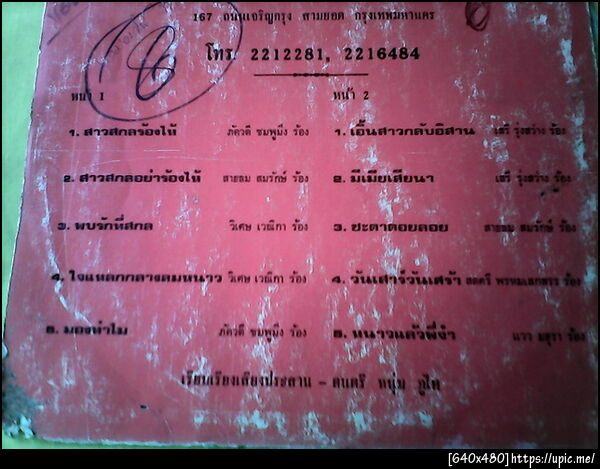 167 ถนนเจริญกรุง สามยอด กรุงเทพมหานคร
โทร. 2212281, 2216484
หน้า 1 หน้า 2
1. สาวสกลร้องไห้ ภัควดี ชมพูมิ่ง ร้อง 1. เอิ้นสาวกลับอีสาน เสรี รุ่งสว่าง ร้อง
2. สาวสกลอย่าร้องไห้ สายลม สมรักษ์ ร้อง 2. มีเมียเสียนา เสรี รุ่งสว่าง ร้อง
3. พบรักที่สกล วิเศษ เวณิกา ร้อง 3. ชะตาดอยลอย สายลม สมรักษ์ ร้อง
4. ใจแหลกกลางลมหนาว วิเศษ เวณิกา ร้อง 4. วันเสาร์วันเศร้า ร้อง
5. มองทำไม ภัควดี ชมพูมิ่ง ร้อง 5. หนาวแล้วพี่จ๋า แวว ร้อง
เรียบเรียงเสียงประสาน - ดนตรี หนุ่ม ภูไท
[640x480]https://upic.me/